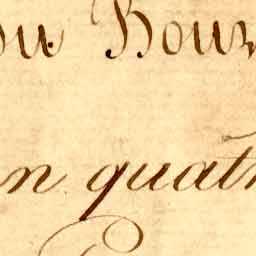 du Bour
n quatr